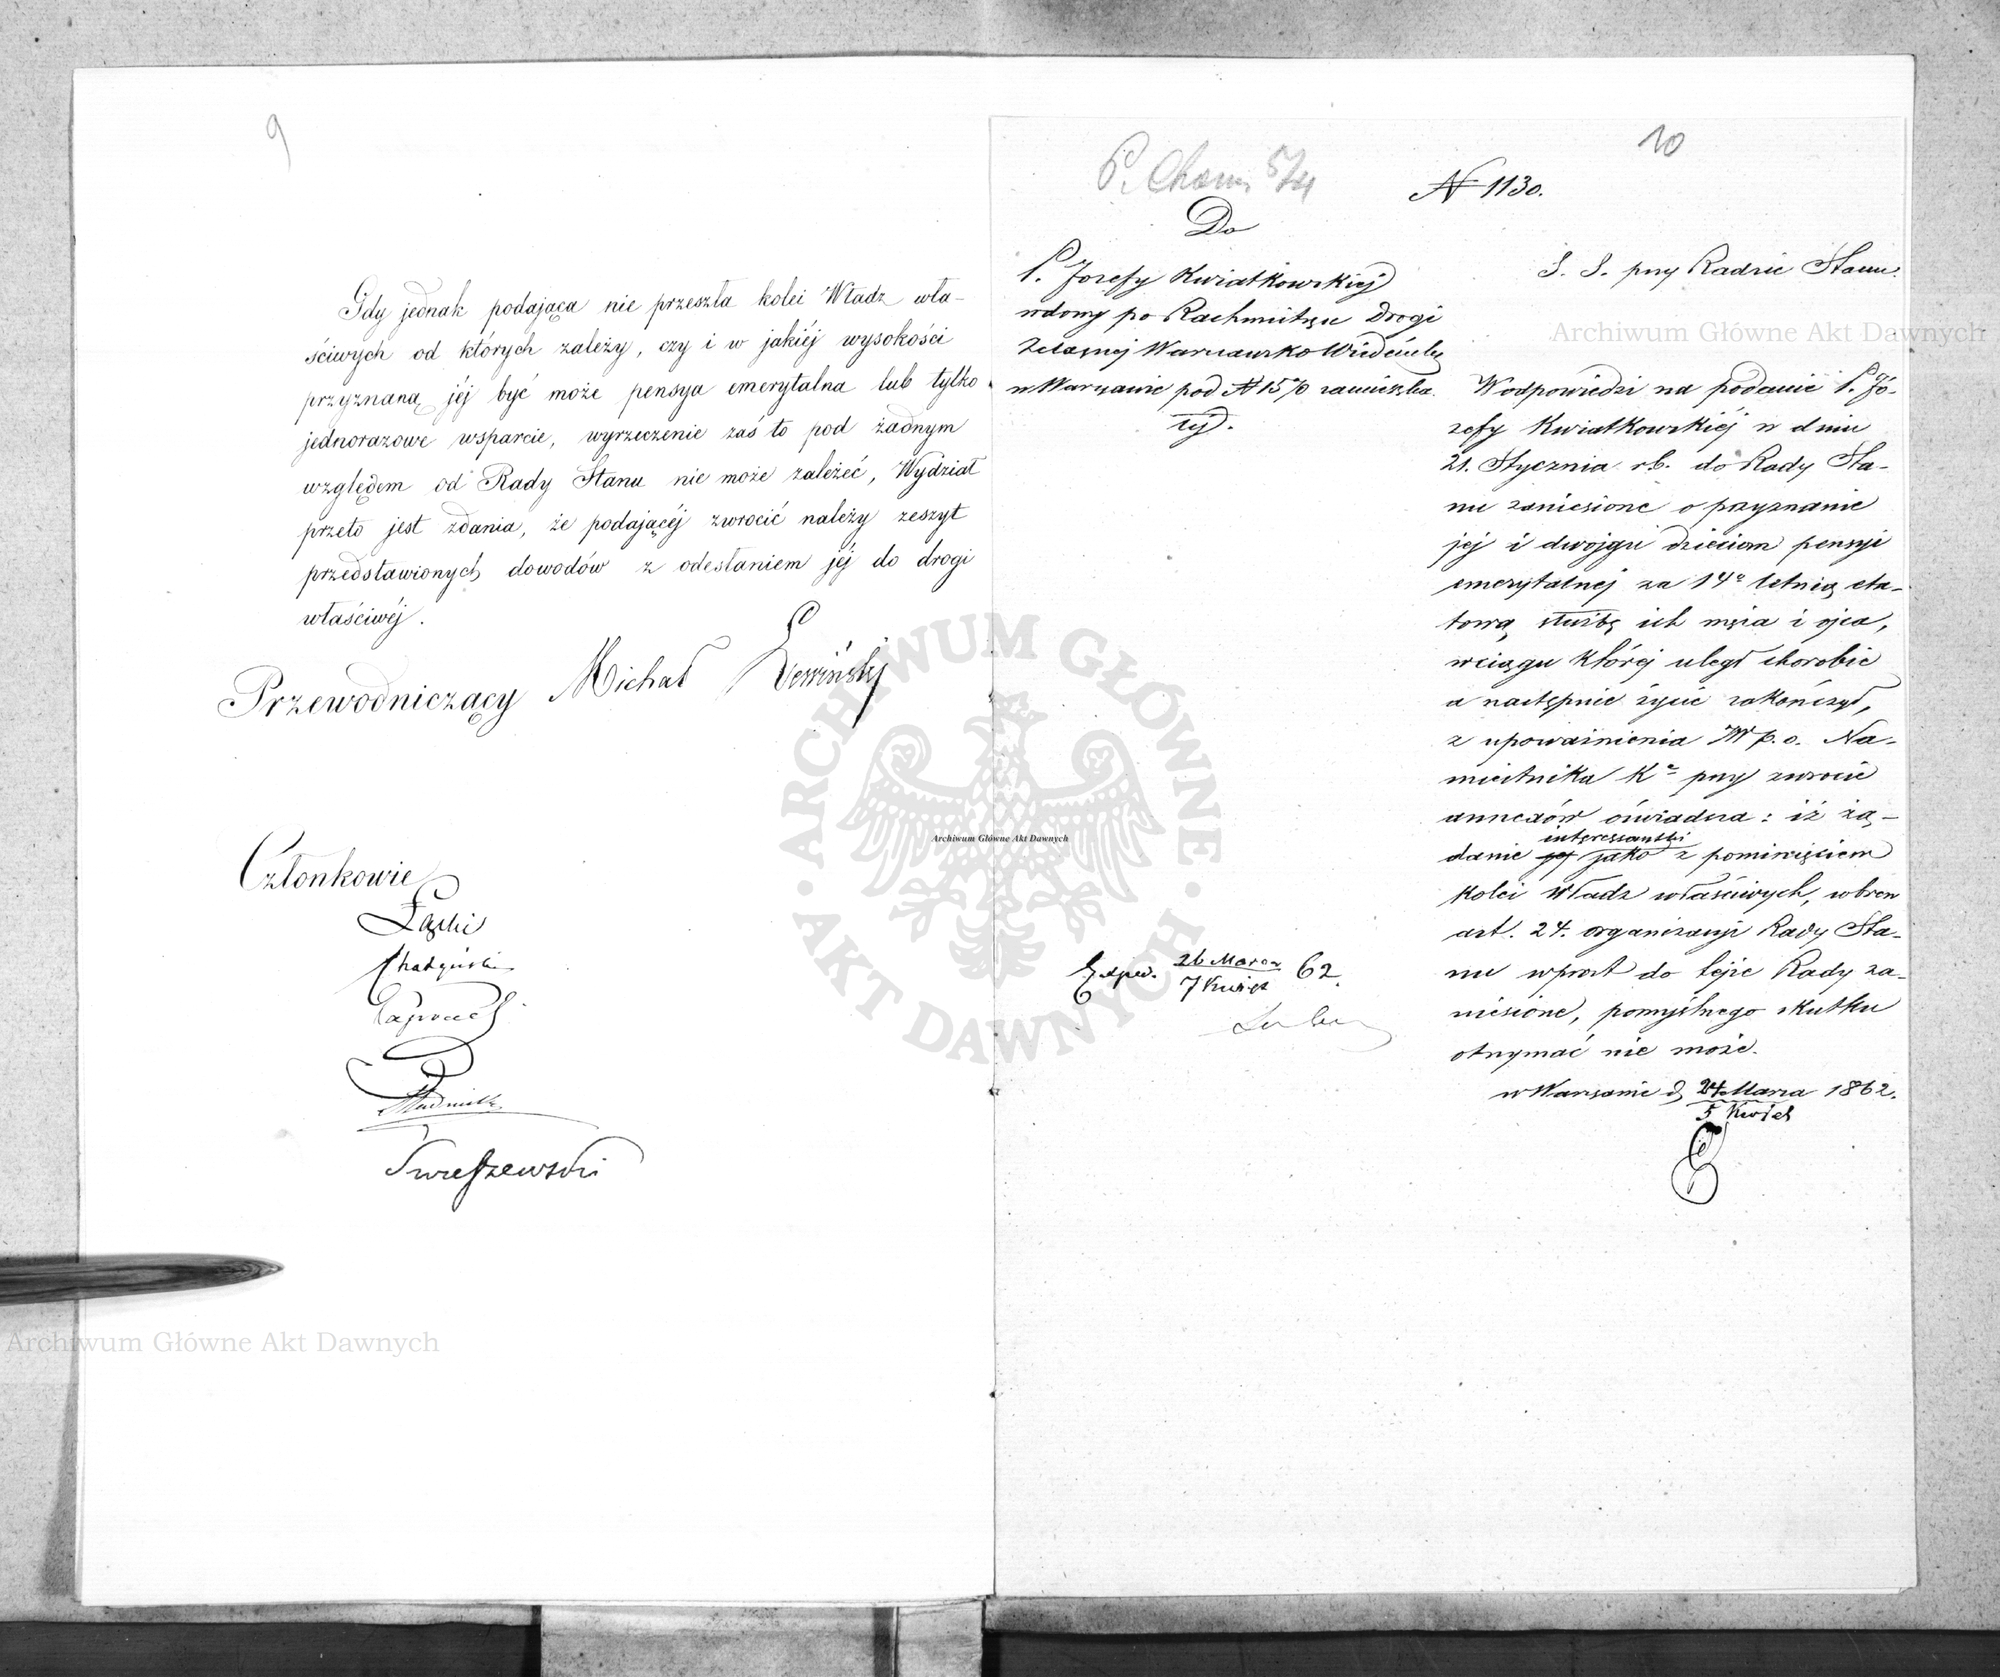 9
Gdy jednak podająca nie przeszła kolei Władz wła-
ściwych od których zależy, czy i w jakiéj wysokości
przyznaną jéj być może pensya emerytalna lub tylko
jednorazowe wsparcie, wyrzeczenie zaś to pod żadnym
względem od Rady Stanu nie może zależeć, Wydział
przeto jest zdania, że podającéj zwrocić należy zeszyt
przedstawionych dowodów z odesłaniem jéj do drogi
właściwéj.
Przewodniczący Michał
Członkowie
Łąski
10
P. Cham. 5/4
N 1130.
Do
P. Jozefy Kwiatkowskiej
wdowy po Rachmistrzu Drogi
Żelaznej Warszawsko Wiedeńsk
w Warszawie pod N 1570 zamieszka
łej.
S. S. przy Radzie Stanu.
W odpowiedzi na podanie P. Jó-
zefy Kwiatkowskiéj w dniu
21. Stycznia rb. do Rady Sta-
nu zaniesione o przyznanie
jej i dwojgu dzieciom pensyi
emerytalnej za 14o letnią eta-
tową służbę ich męża i ojca,
wciągu której uległ chorobie
a następnie życie zakończył,
z upoważnienia JW p. o. Na-
miestnika Ka przy zwrocie
annexów oświadcza: iż żą-
interessantki
danie jej jako z pominięciem
kolei Władz właściwych, wbrew
art. 24. organizacyi Rady Sta-
nu wprost do tejże Rady za-
niesione, pomyślnego skutku
otrzymać nie może.
w Warszawie d 24 Marca 1862.
5 Kwiet
Exped. 26 Marca 62.
7 Kwiet
Archiwum Główne Akt Dawnych
Archiwum Główne Akt Dawnych
Archiwum Główne Akt Dawnych
· ARCHIWUM GŁÓWNE · AKT DAWNYCH